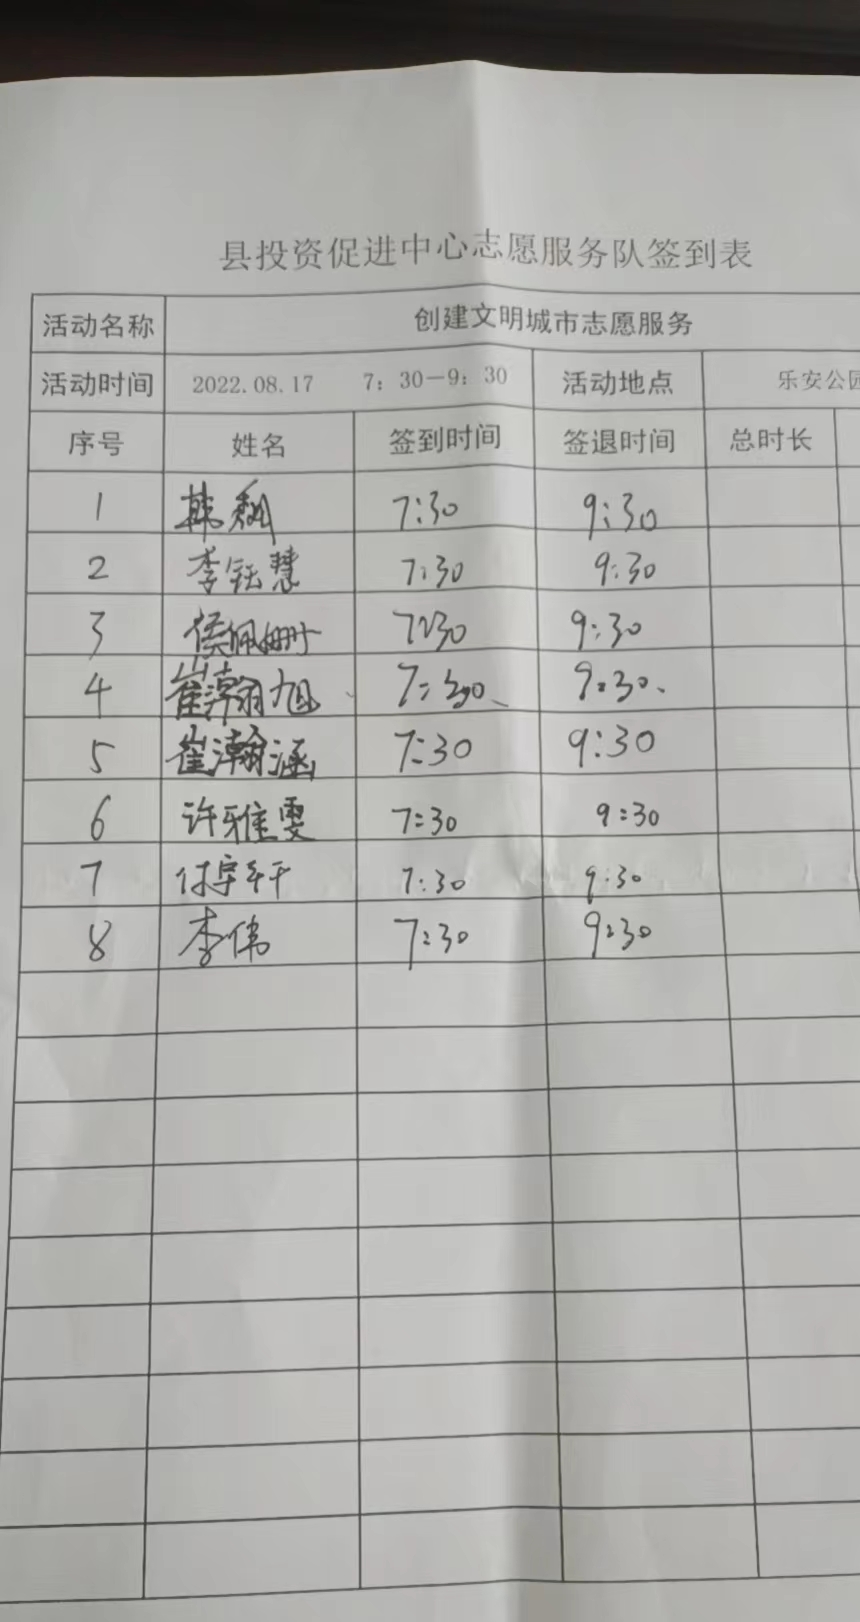 县投资促进中心志愿服务队签到表
活动名称 创建文明城市志愿服务
活动时间 2022.08.17 7：30－9：30 活动地点 乐安公园
序号 姓名 签到时间 签退时间 总时长
1 韩 7:30 9:30
2 李钰慧 7:30 9:30
3 侯佩姗 7:30 9:30
4 崔瀚旭 7:30 9:30
5 崔瀚涵 7:30 9:30
6 许雅雯 7:30 9:30
7 付宇轩 7:30 9:30
8 李伟 7:30 9:30